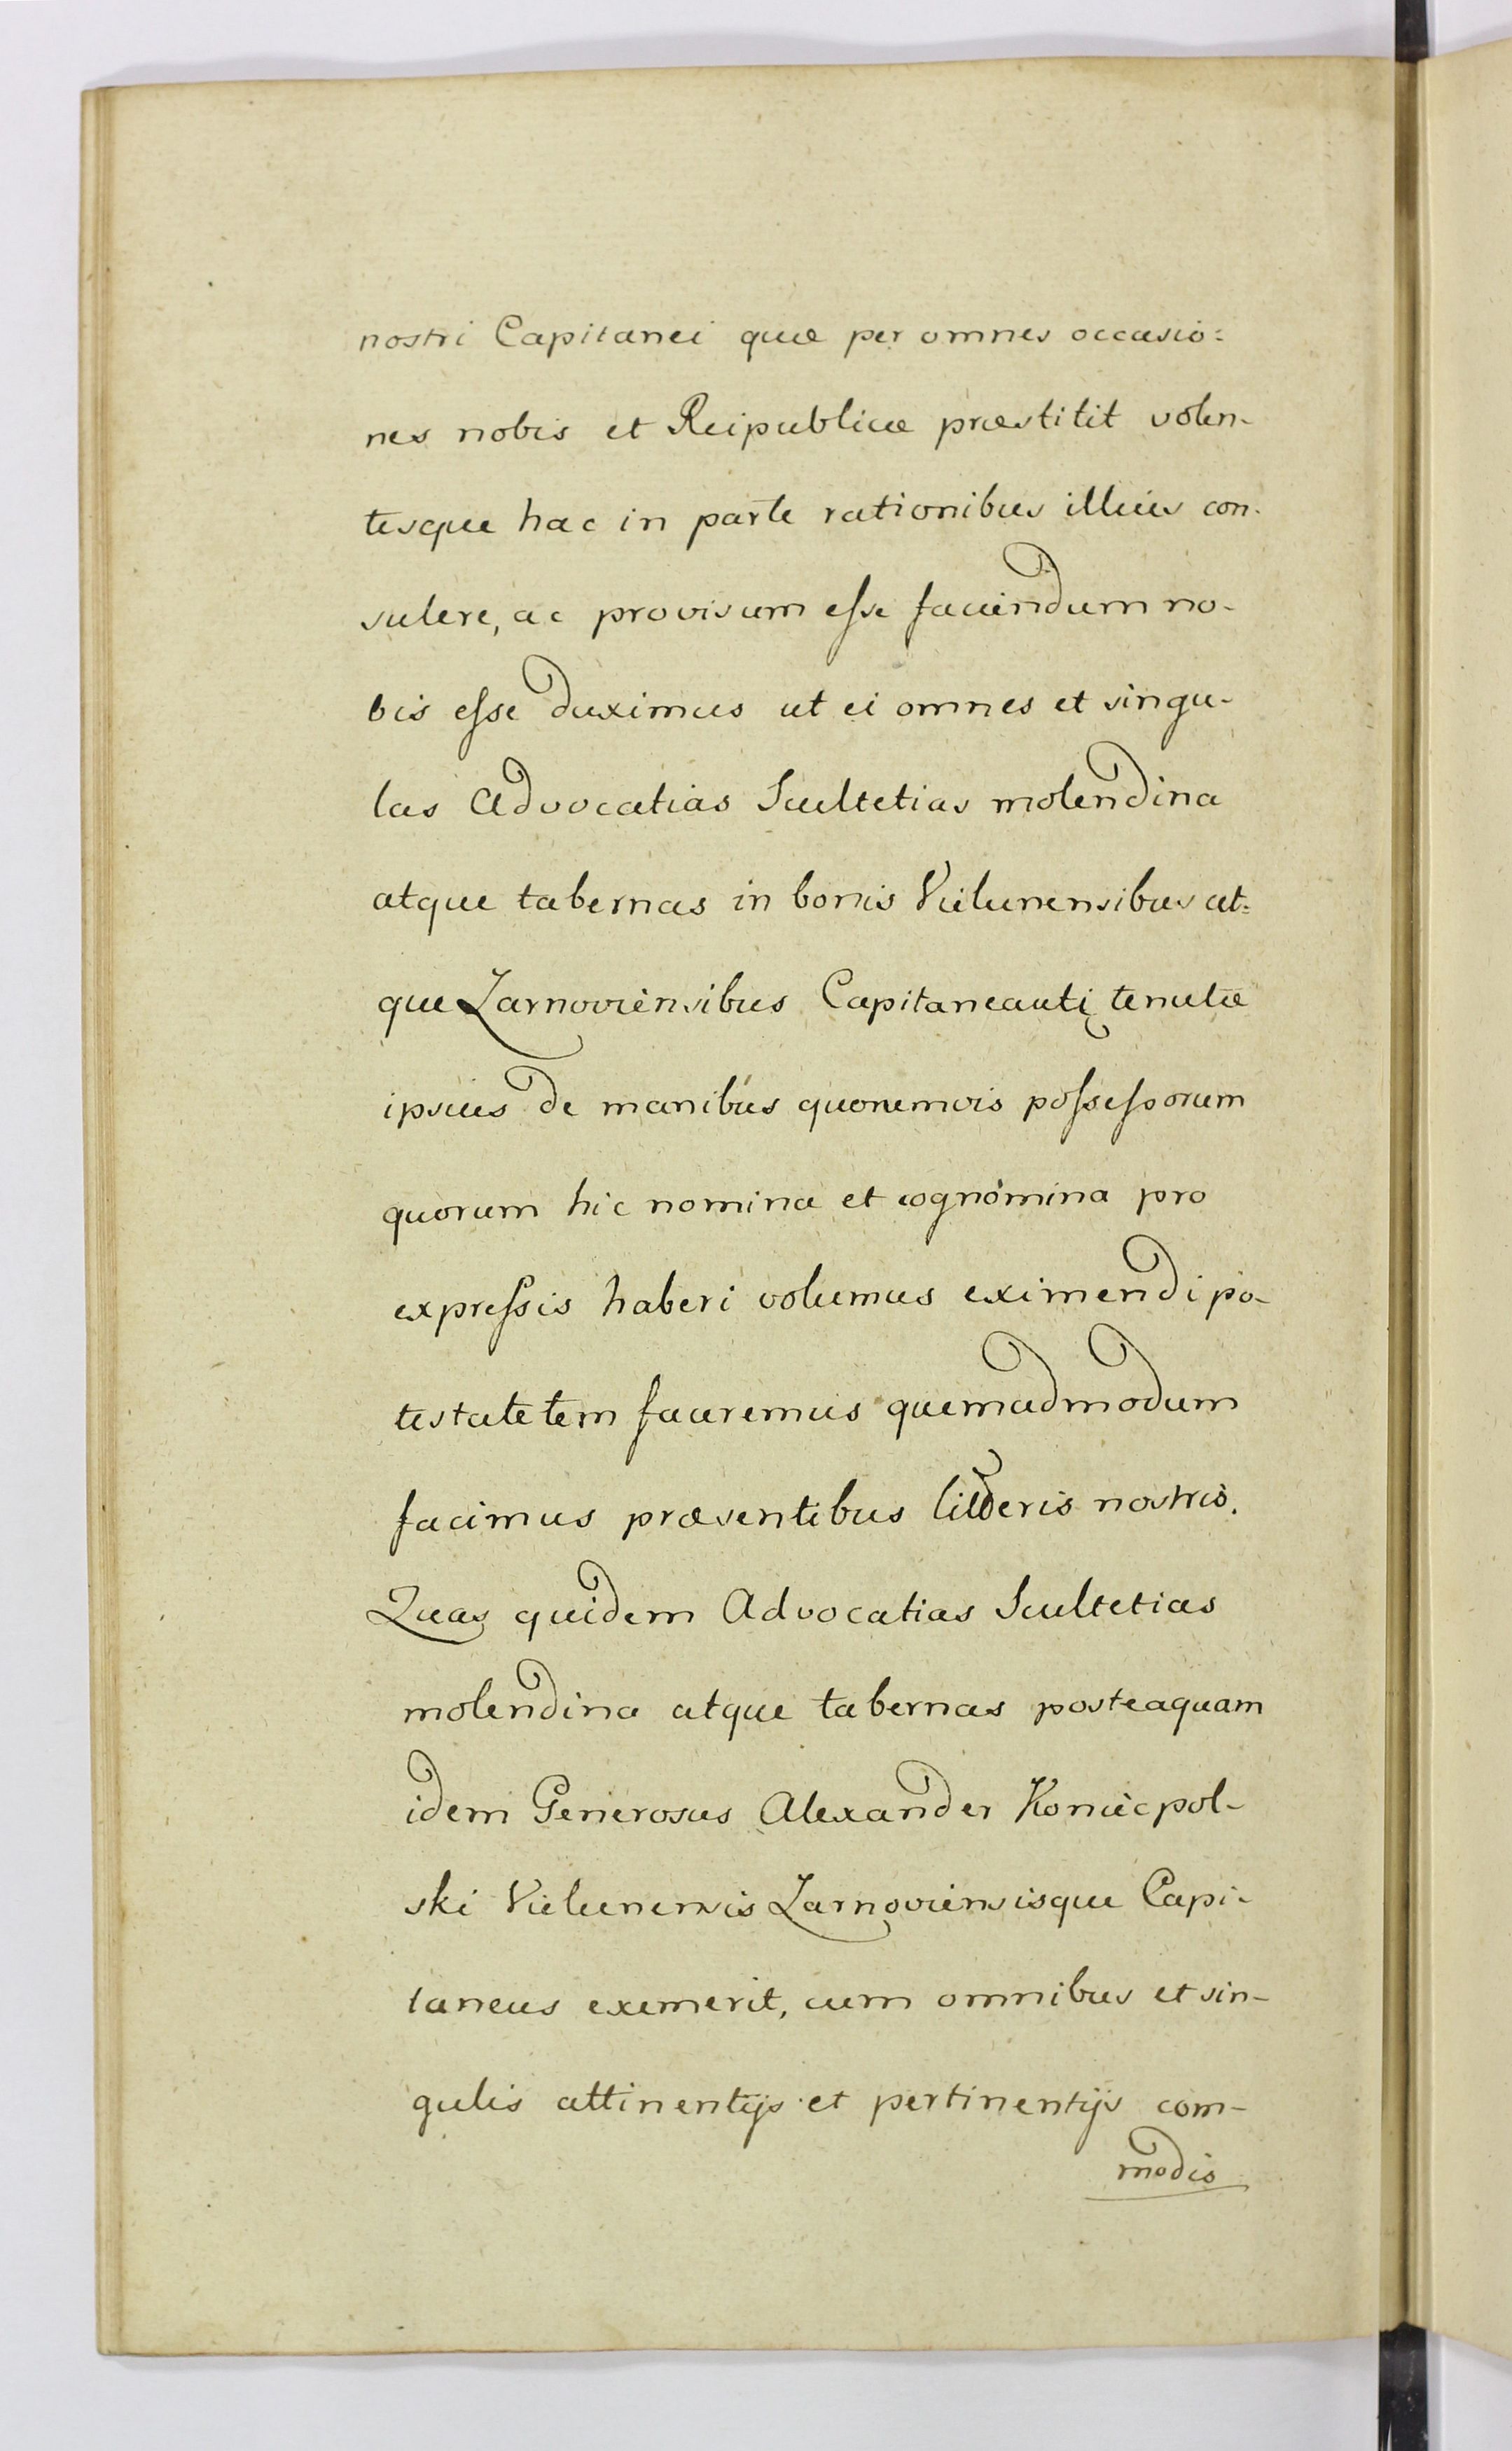 nostri Capitanei quæ per omnes occasio:
nes nobis et Reipublicæ præstitit volen-
tesque hac in parte rationibus illius con-
sulere, ac provisum esse faciendum no-
bis esse duximus ut ei omnes et singu-
las Advocatias Scultetias molendina
atque tabernas in bonis Vielunensibus at=
que Zarnoviensibus Capitaneauti tenutæ
ipsius de manibus quorumvis possessorum
quorum hic nomina et cognomina pro
expressis haberi volumus eximendi po-
testatetem faceremus quemadmodum
facimus præsentibus litteris nostris.
Quas quidem Advocatias Scultetias
molendina atque tabernas posteaquam
idem Generosus Alexander Koniecpol-
ski Vielunensis Zarnoviensisque Capi-
taneus exemerit, cum omnibus et sin-
gulis attinentijs et pertinentijs com-
modis